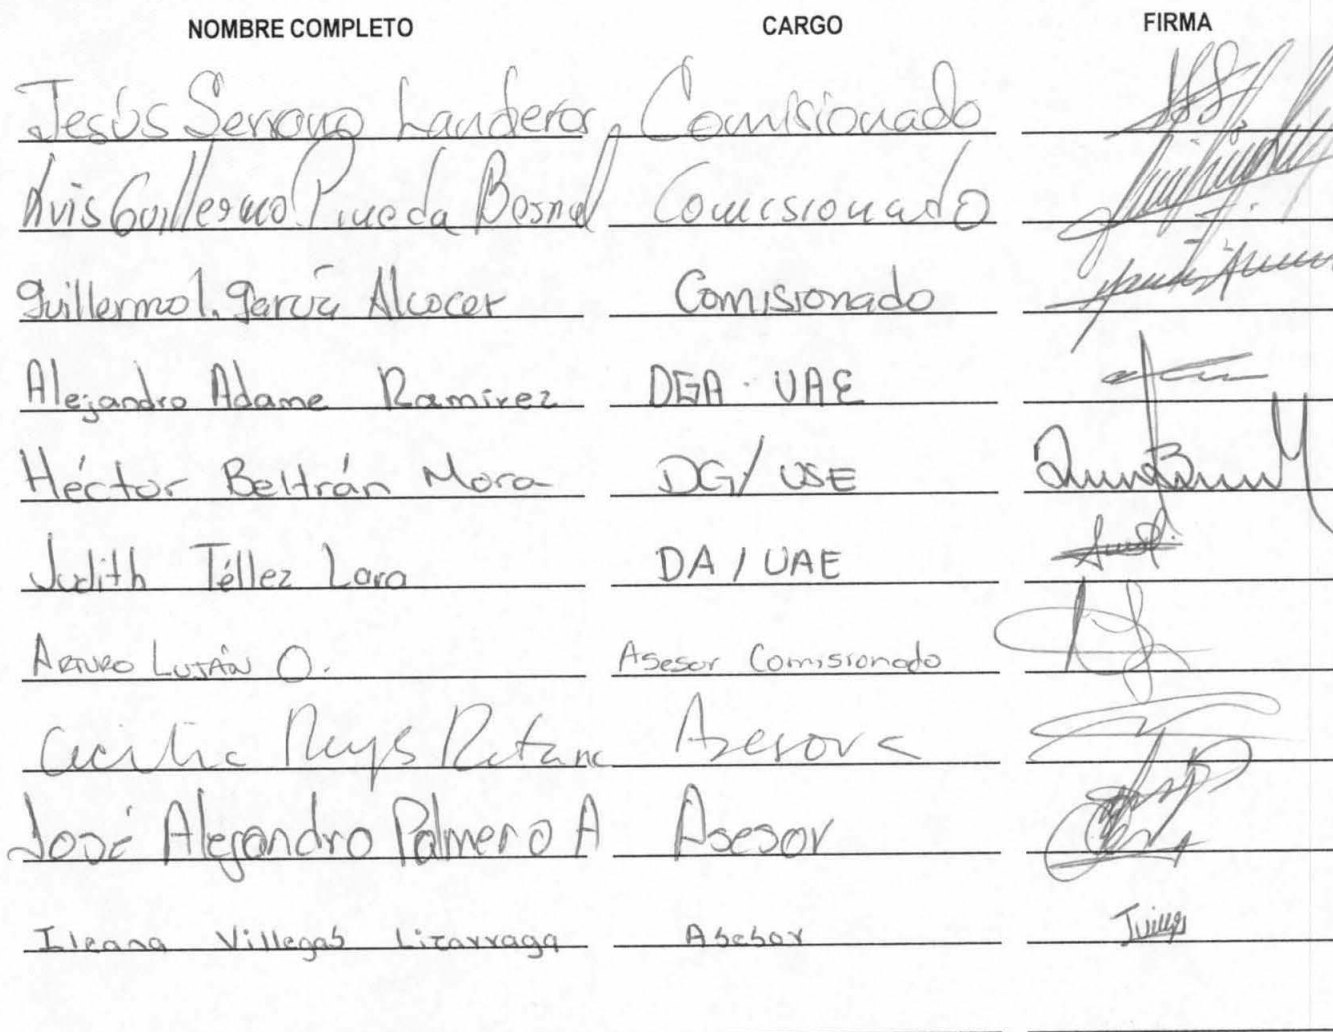 NOMBRE COMPLETO CARGO FIRMA
Jesús Serrano Landeros Comisionado
Luis Guillermo Pineda Bernal Comisionado
Guillermo I. García Alcocer Comisionado
Alejandro Adame Ramírez DGA - UAE
Héctor Beltrán Mora DG/ USE
Judith Téllez Lara DA / UAE
ARTURO LUJÁN O. Asesor Comisionado
Cecilia Reyes Retana Asesora
José Alejandro Palmero A Asesor
Ileana Villegas Lizarraga Asesor